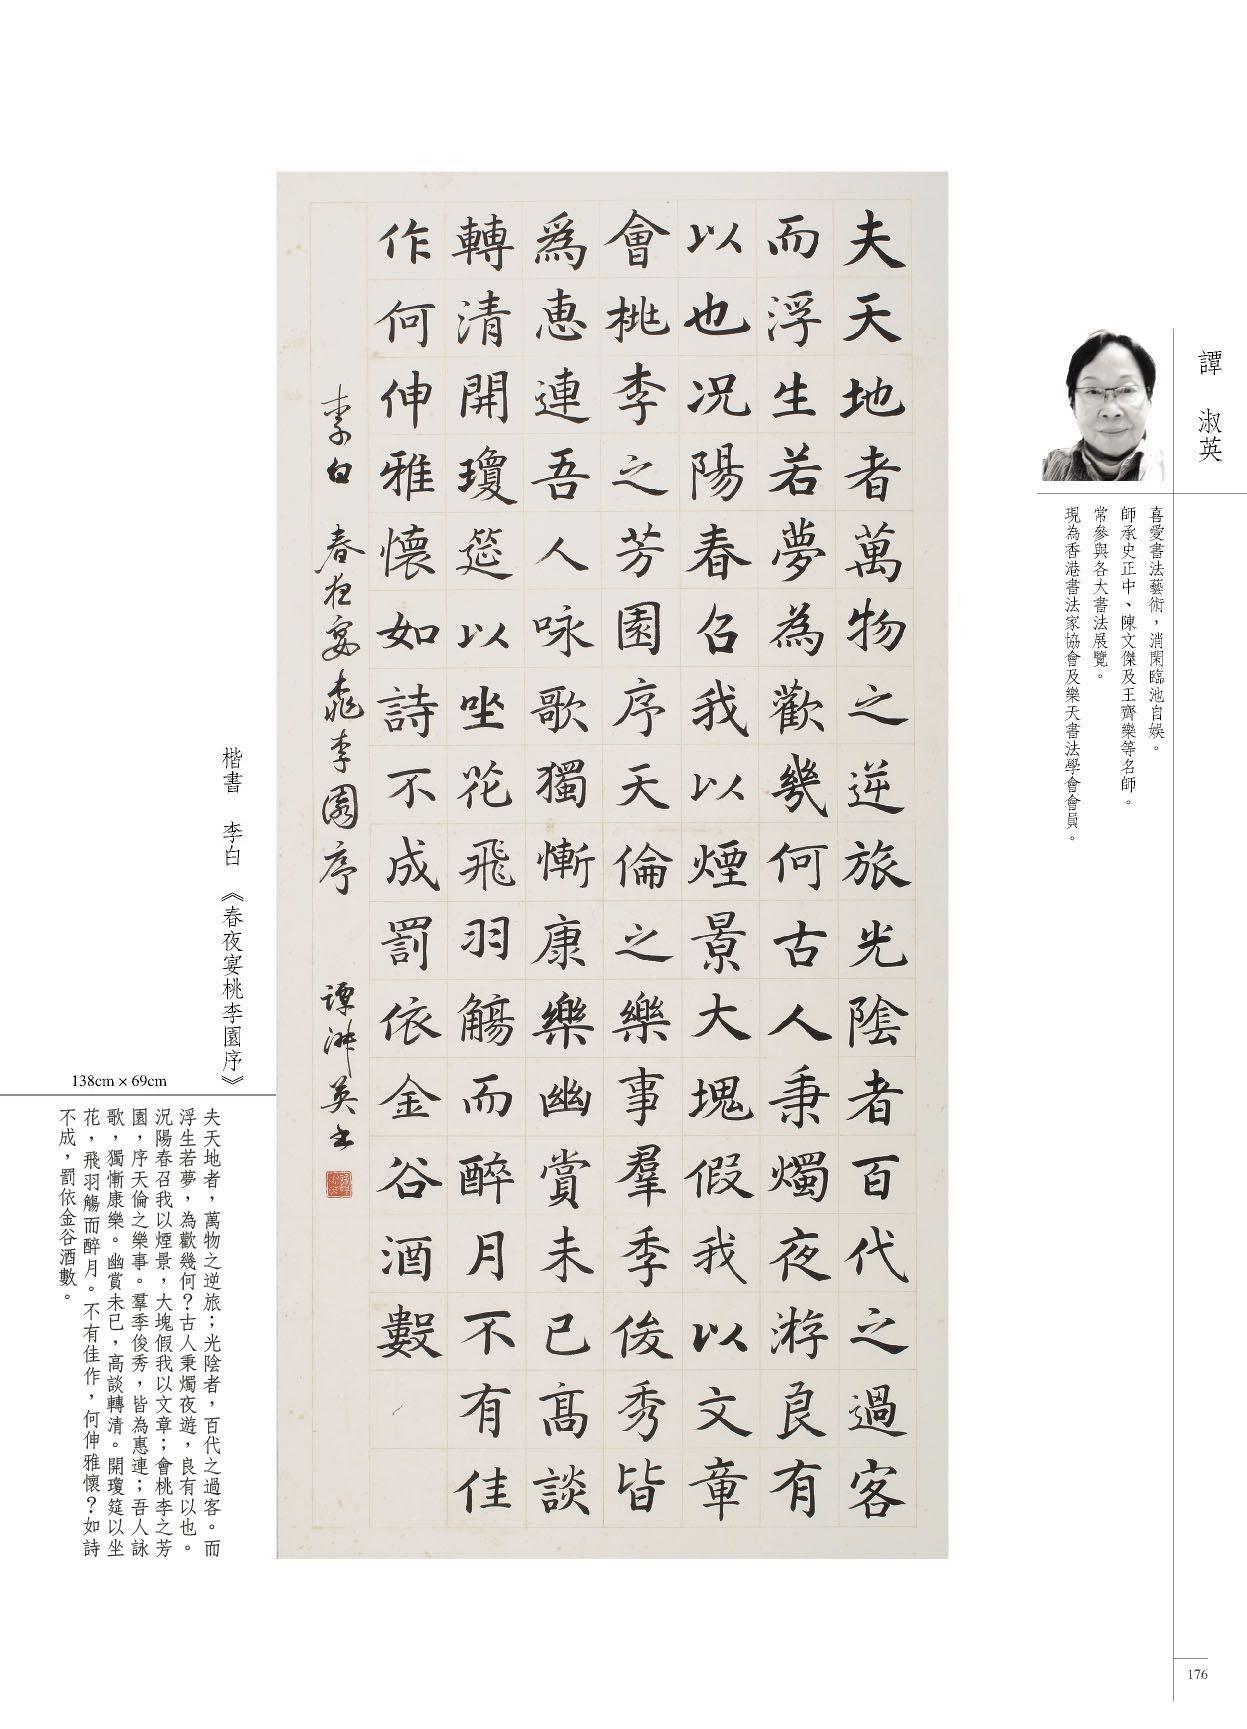 譚 淑英
喜愛書法藝術，消閑臨池自娛。
師承史正中、陳文傑及王齊樂等名師。
常參與各大書法展覽。
現為香港書法家協會及樂天書法學會會員。
夫天地者萬物之逆旅光陰者百代之過客
而浮生若夢為歡幾何古人秉燭夜游良有
以也況陽春召我以煙景大塊假我以文章
會桃李之芳園序天倫之樂事羣季俊秀皆
爲惠連吾人咏歌獨慚康樂幽賞未已高談
轉清開瓊筵以坐花飛羽觴而醉月不有佳
作何伸雅懷如詩不成罰依金谷酒數
李白 春夜宴桃李園序 譚淑英書
楷書 李白 《春夜宴桃李園序》
138cm × 69cm
夫天地者，萬物之逆旅；光陰者，百代之過客。而
浮生若夢，為歡幾何？古人秉燭夜遊，良有以也。
況陽春召我以煙景，大塊假我以文章；會桃李之芳
園，序天倫之樂事。羣季俊秀，皆為惠連；吾人詠
歌，獨慚康樂。幽賞未已，高談轉清。開瓊筵以坐
花，飛羽觴而醉月。不有佳作，何伸雅懷？如詩
不成，罰依金谷酒數。
176